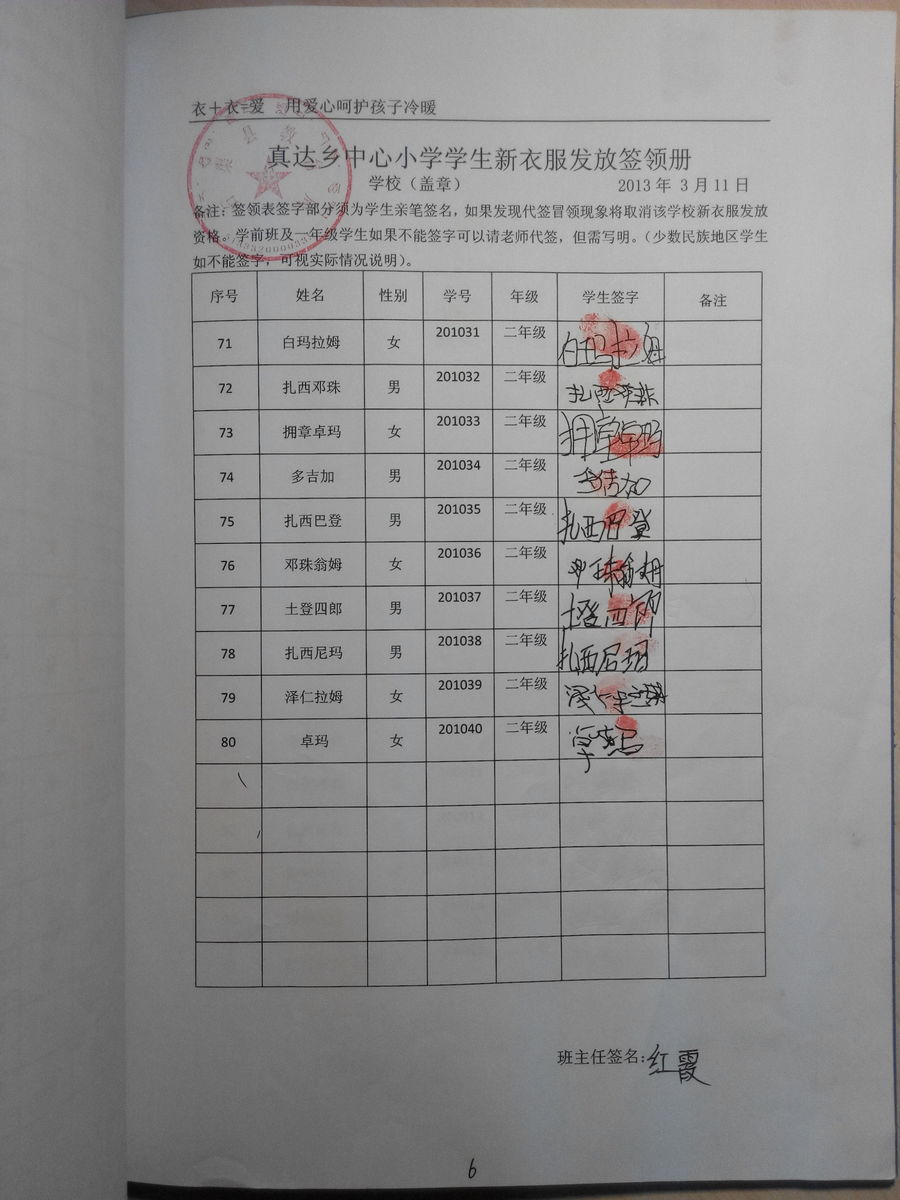 衣+衣=爱 用爱心呵护孩子冷暖
真达乡中心小学学生新衣服发放签领册
学校（盖章） 2013 年 3 月 11 日
备注：签领表签字部分须为学生亲笔签名，如果发现代签冒领现象将取消该学校新衣服发放
资格。学前班及一年级学生如果不能签字可以请老师代签，但需写明。（少数民族地区学生
如不能签字，可视实际情况说明）。
序号 姓名 性别 学号 年级 学生签字 备注
71 白玛拉姆 女 201031 二年级 白玛拉姆
72 扎西邓珠 男 201032 二年级 扎西邓珠
73 拥章卓玛 女 201033 二年级 拥章卓玛
74 多吉加 男 201034 二年级 多吉加
75 扎西巴登 男 201035 二年级 扎西巴登
76 邓珠翁姆 女 201036 二年级 邓珠翁姆
77 土登四郎 男 201037 二年级 土登四郎
78 扎西尼玛 男 201038 二年级 扎西尼玛
79 泽仁拉姆 女 201039 二年级 泽仁拉姆
80 卓玛 女 201040 二年级
班主任签名：红霞
6